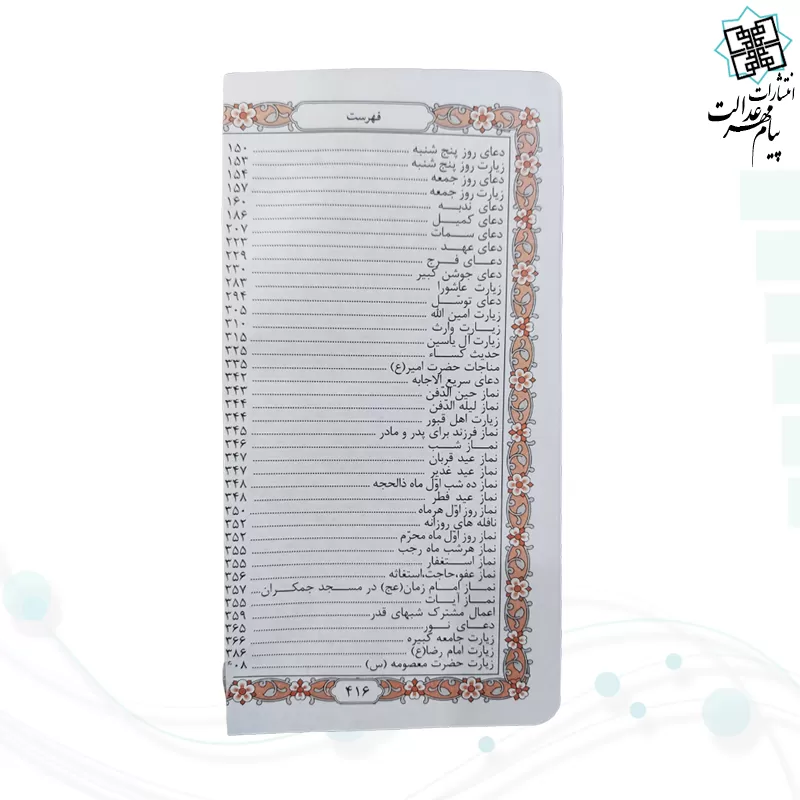 انتشارات
پیام مهر عدالت
فهرست
دعای روز پنج شنبه ۱۵۰
زیارت روز پنج شنبه ۱۵۳
دعای روز جمعه ۱۵۴
زیارت روز جمعه ۱۵۷
دعای ندبه ۱۶۰
دعای کمیل ۱۸۶
دعای سمات ۲۰۷
دعای عهد ۲۲۳
دعای فرج ۲۲۹
دعای جوشن کبیر ۲۳۰
زیارت عاشورا ۲۸۳
دعای توسّل ۲۹۴
زیارت امین الله ۳۰۵
زیارت وارث ۳۱۰
زیارت آل یاسین ۳۱۵
حدیث کساء ۳۲۵
مناجات حضرت امیر(ع) ۳۳۵
دعای سریع الاجابه ۳۴۲
نماز حین الدّفن ۳۴۳
نماز لیله الدّفن ۳۴۴
زیارت اهل قبور ۳۴۴
نماز فرزند برای پدر و مادر ۳۴۵
نماز شب ۳۴۶
نماز عید قربان ۳۴۷
نماز عید غدیر ۳۴۷
نماز ده شب اوّل ماه ذالحجه ۳۴۸
نماز عید فطر ۳۴۸
نماز روز اوّل هرماه ۳۵۰
نافله های روزانه ۳۵۲
نماز روز اوّل ماه محرّم ۳۵۲
نماز هرشب ماه رجب ۳۵۵
نماز استغفار ۳۵۵
نماز عفو،حاجت،استغاثه ۳۵۶
نماز امام زمان(عج) در مسجد جمکران ۳۵۷
نماز آیات ۳۵۵
اعمال مشترک شبهای قدر ۳۵۹
دعای نور ۳۶۵
زیارت جامعه کبیره ۳۶۶
زیارت امام رضا(ع) ۳۸۶
زیارت حضرت معصومه (س) ۴۰۸
۴۱۶